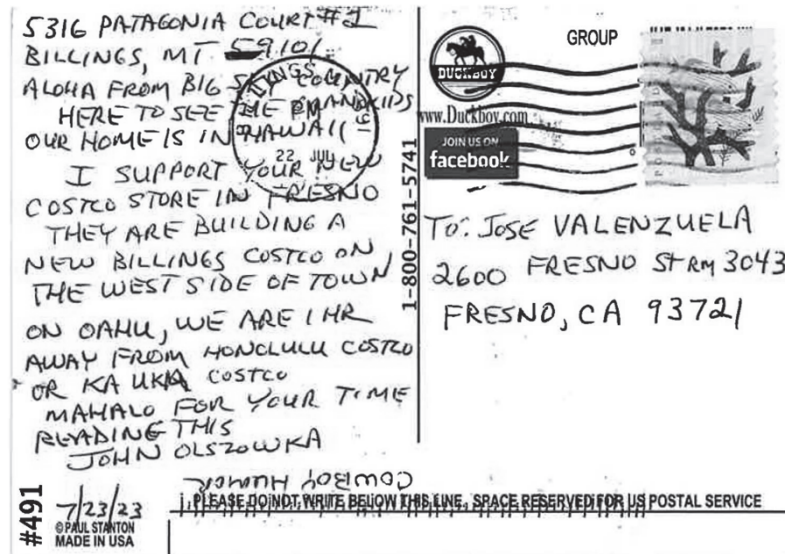 5316 PATAGONIA COURT #2
BILLINGS, MT 59101
ALOHA FROM BIG SKY COUNTRY
HERE TO SEE THE GRANDKIDS
OUR HOME IS IN HAWAII
I SUPPORT YOUR NEW
COSTCO STORE IN FRESNO
THEY ARE BUILDING A
NEW BILLINGS COSTCO ON
THE WEST SIDE OF TOWN
ON OAHU, WE ARE 1 HR
AWAY FROM HONOLULU COSTCO
OR KA UKA COSTCO
MAHALO FOR YOUR TIME
READING THIS
JOHN OLSZOWKA
COWBOY HUMOR
7/23/23
#491
©PAUL STANTON
MADE IN USA
BILLINGS
PM
22 JUL
1-800-761-5741
DUCKBOY
www.Duckboy.com
JOIN US ON
facebook
GROUP
TO: JOSE VALENZUELA
2600 FRESNO ST RM 3043
FRESNO, CA 93721
PLEASE DO NOT WRITE BELOW THIS LINE. SPACE RESERVED FOR US POSTAL SERVICE